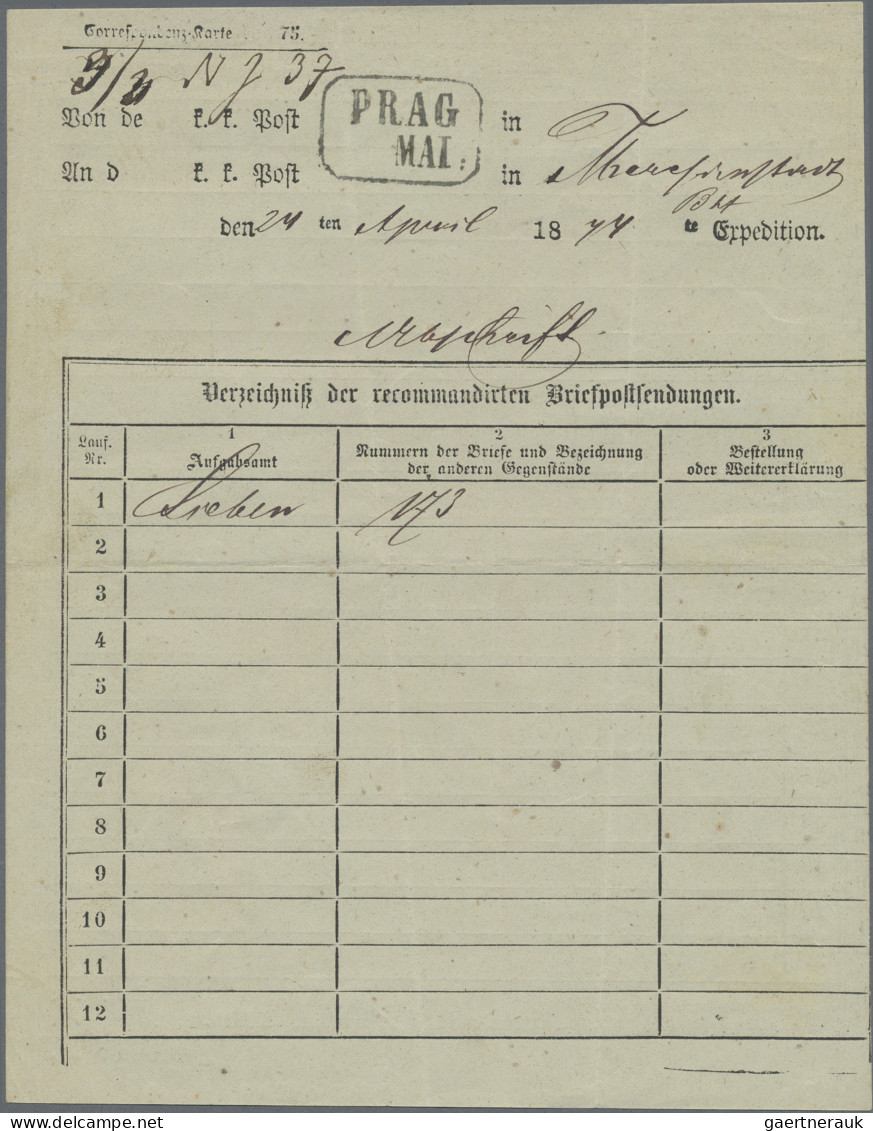 Correspondenz-Karte 75.
3/3 N J 37
Von de k. k. Post PRAG MAI. in
An d k. k. Post in Theresienstadt
den 24 ten April 1874 te Expedition.
Abschrift.
Verzeichniß der recommandirten Briefpostsendungen.
Lauf. Nr.
1 Aufgabsamt
2 Nummern der Briefe und Bezeichnung der anderen Gegenstände
3 Bestellung oder Weitererklärung
1 Lieben 173
2
3
4
5
6
7
8
9
10
11
12
delcampe.net
gaertnerauk